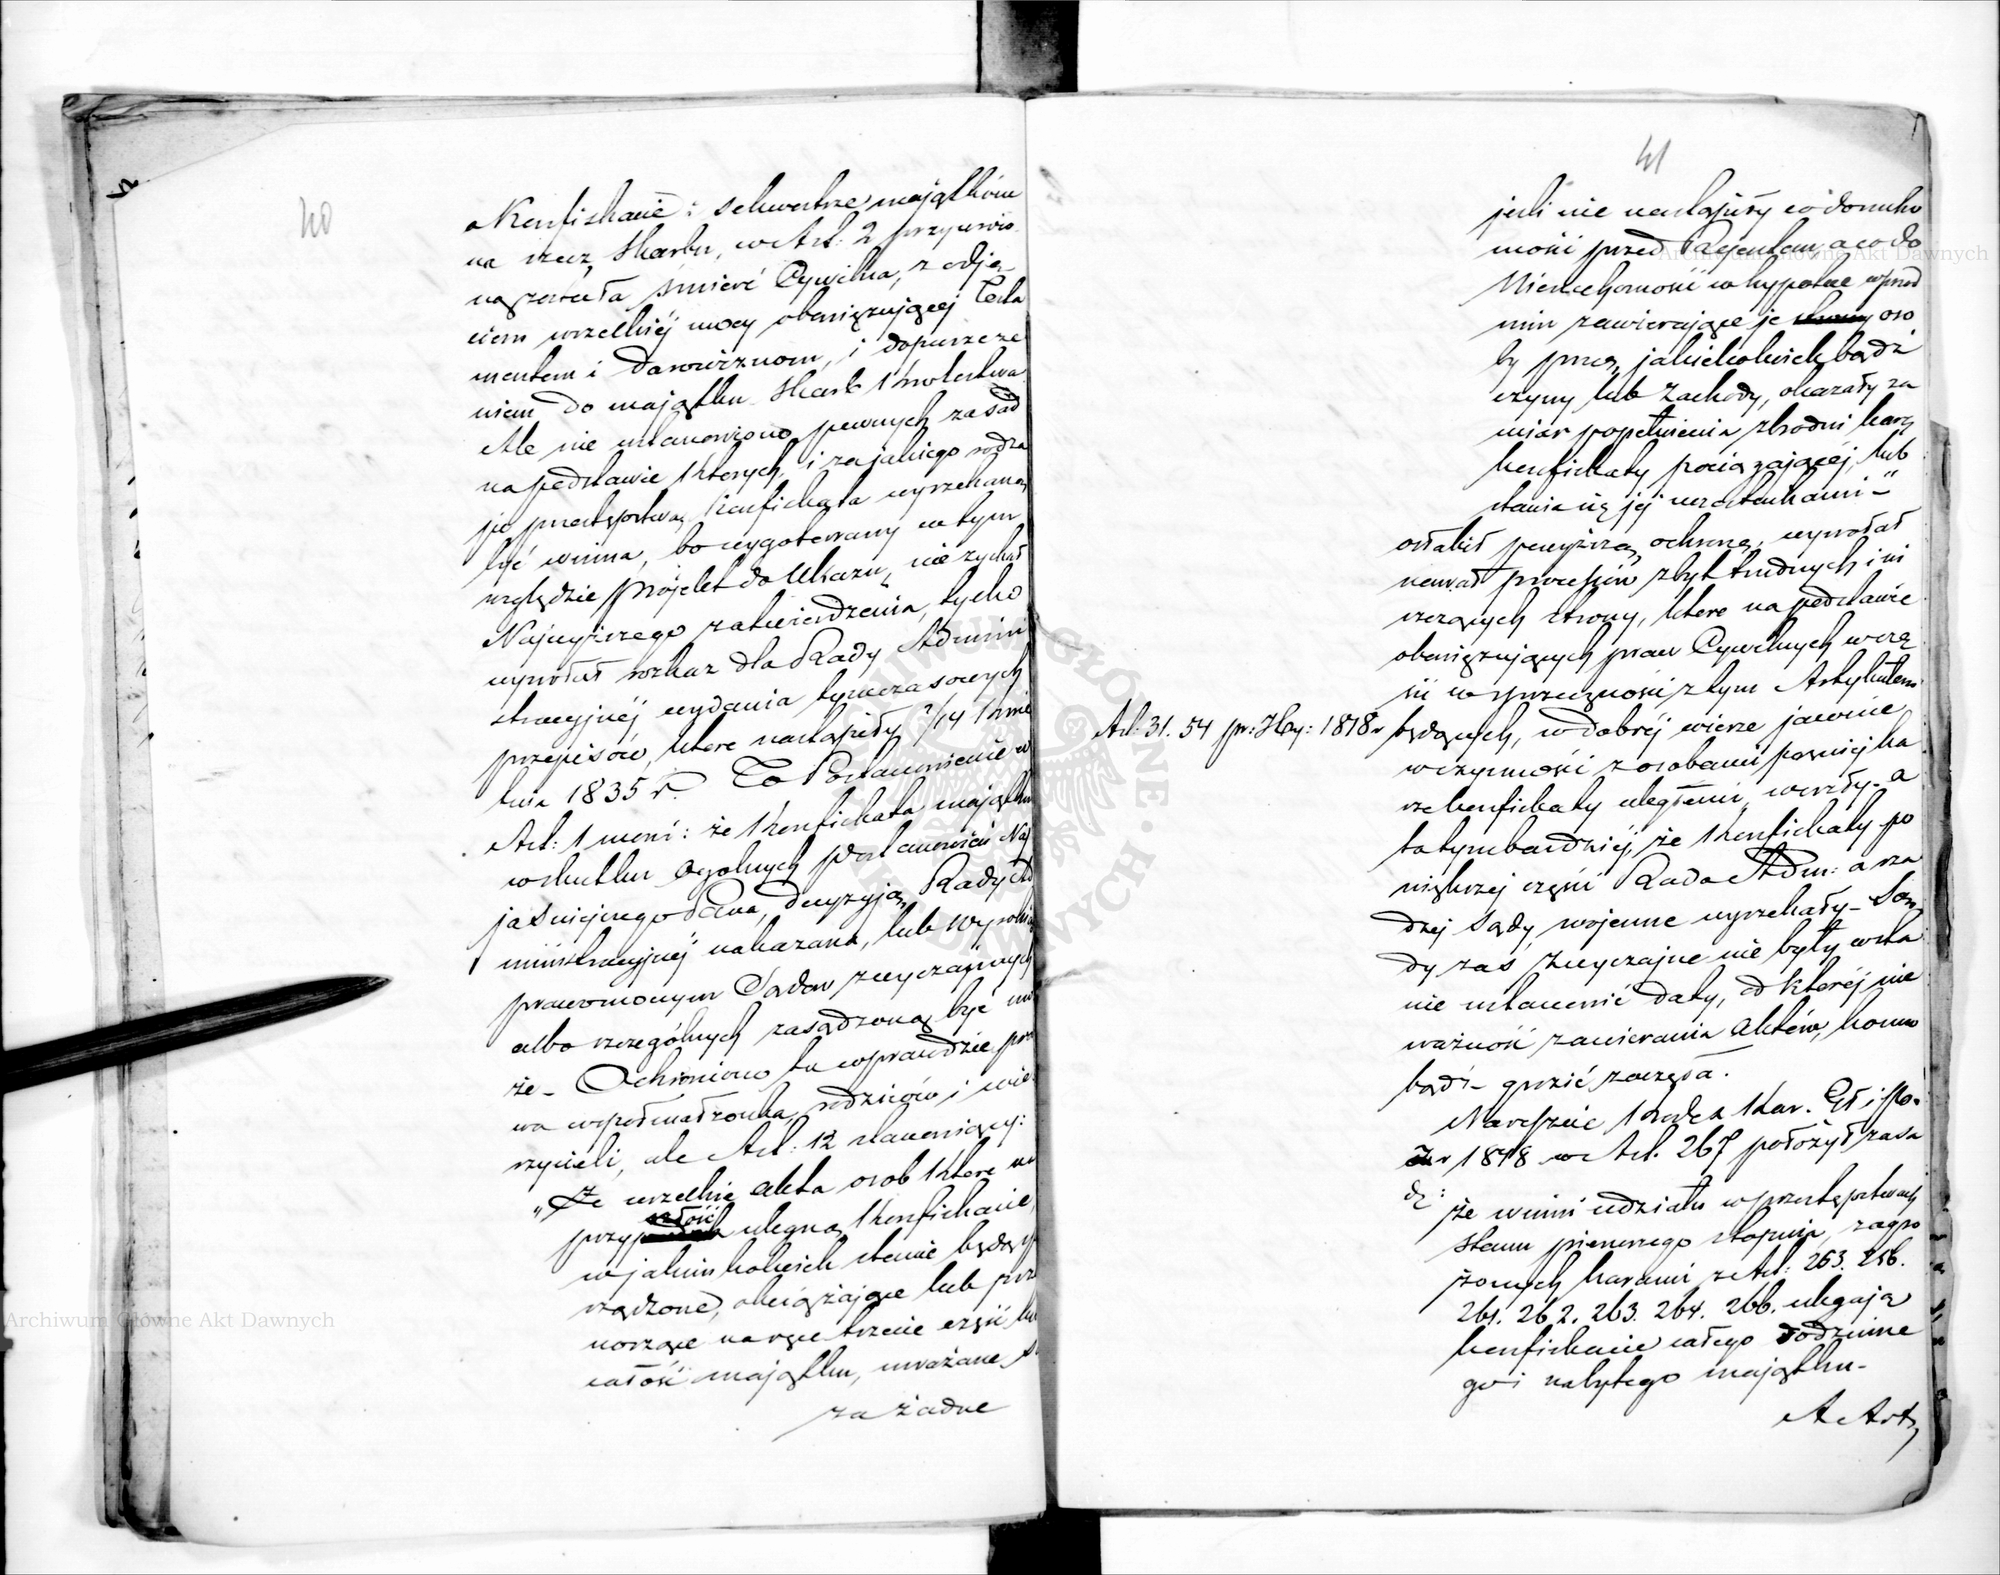 40
o Konfiskacie i sekwestrze majątków
na rzecz Skarbu, w Art: 2 przyzwo
na została śmierć Cywilna, z odję
ciem wszelkiéj mocy obowiązującej Testa
mentem i darowiznom, i dopuszcze
niem do majątku Skarb Królestwa
Ale nie ustanowiono pewnych zasad
na podstawie których, i za jakiego rodza
ju przestępstwa, Konfiskata wyrzekaną
być winna, bo wygotowany w tym
względzie projekt do Ukazu, nie zyskał
Najwyższego zatwierdzenia, tylko
wywołał rozkaz dla Rady Admini
stracyjnéj wydania tymczasowych
przepisów, które nastąpiły 2/14 Kwie
tnia 1835 r. To Postanowienie w
Art: 1 mówi: że Konfiskata majątku
w skutku ogólnych postanowień Naj
jaśniejszego Pana, decyzyją Rady Ad
ministracyjnéj nakazana, lub wyrokiem
prawomocnym Sądów zwyczajnych
albo szczególnych zasądzoną być mo
że - Ochroniono tu wprawdzie pra
wa współmałżonka, rodziców i wie
rzycieli, ale Art: 12 stanowiący:
"Że wszelkie akta osób które na
przyszłość ulegną Konfiskacie,
w jakimkolwiek stanie będąc
rządzone, obciążające lub prze
noszące na rzecz trzecie część lub
całość majątku, uważane są
za żadne
41
jeśli nie nastąpiły co do rucho
mości przed Rejentem, a co do
Nieruchomości w hypotece wprzód
nim zawierające je osо
by przez jakiekolwiek bądź
czyny lub zachody, okazały za
miar popełnienia zbrodni karę
konfiskaty pociągającej, lub
stania się jej uczestnikami -"
osłabił powyższą ochronę, wywołał
nawał procesów zbyt trudnych i ni
szczących strony, które na podstawie
obowiązujących praw Cywilnych wcza
sie w sprzeczności z tym Artykułem
Art: 31. 54 pr: Hyp: 1818 r
będących, w dobréj wierze jawnie
w czynności z osobami później ka
rze konfiskaty uległemi weszły. a
to tymbardziéj, że Konfiskaty po
większej części Rada Adm: a rza
dziej Sądy wojenne wyrzekały - Są
dy zaś zwyczajne nie były w sta
nie ustanowić daty, od któréj nie
ważność zawierania aktów, komu
bądź - grozić zaczęła.
Nareszcie Kodex Kar. Gł i Po.
z r 1848 w Art. 267 położył zasa
dę:
że winni udziału w przestępstwach
Stanu pierwszego stopnia, zagro
żonych karami z Art: 253. 256.
261. 262. 263. 264. 266. ulegają
konfiskacie całego rodzinne
go i nabytego majątku -
A Art,
Archiwum Główne Akt Dawnych
Archiwum Główne Akt Dawnych
ARCHIWUM GŁÓWNE AKT DAWNYCH